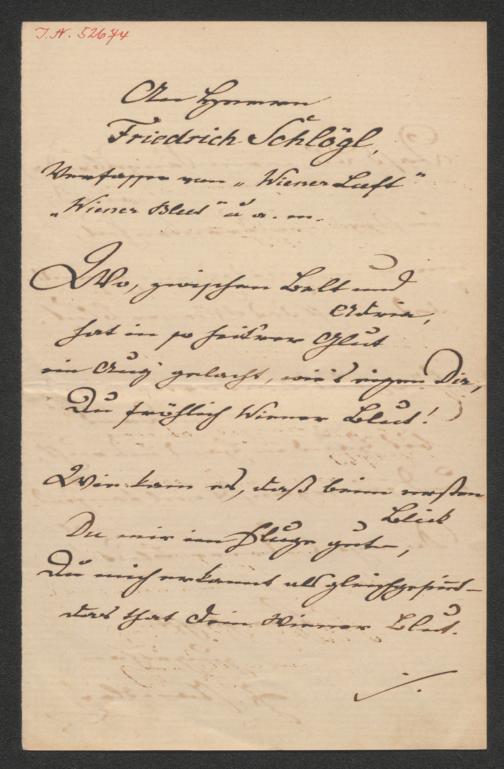 J.N. 52674
An Herrn
Friedrich Schlögl,
Verfasser von „Wiener Luft"
„Wiener Blut" u. a. m.
Wo, zwischen Belt und
Adria,
hat in so heit'rer Glut
ein Aug' gelacht, wie's eigen Dir,
Du fröhlich Wiener Blut!
Wie kam es, daß beim ersten
Blick
Du mir im Fluge gut,
Du mich erkannt als gleichgesinnt –
das that Dein Wiener Blut.
./.